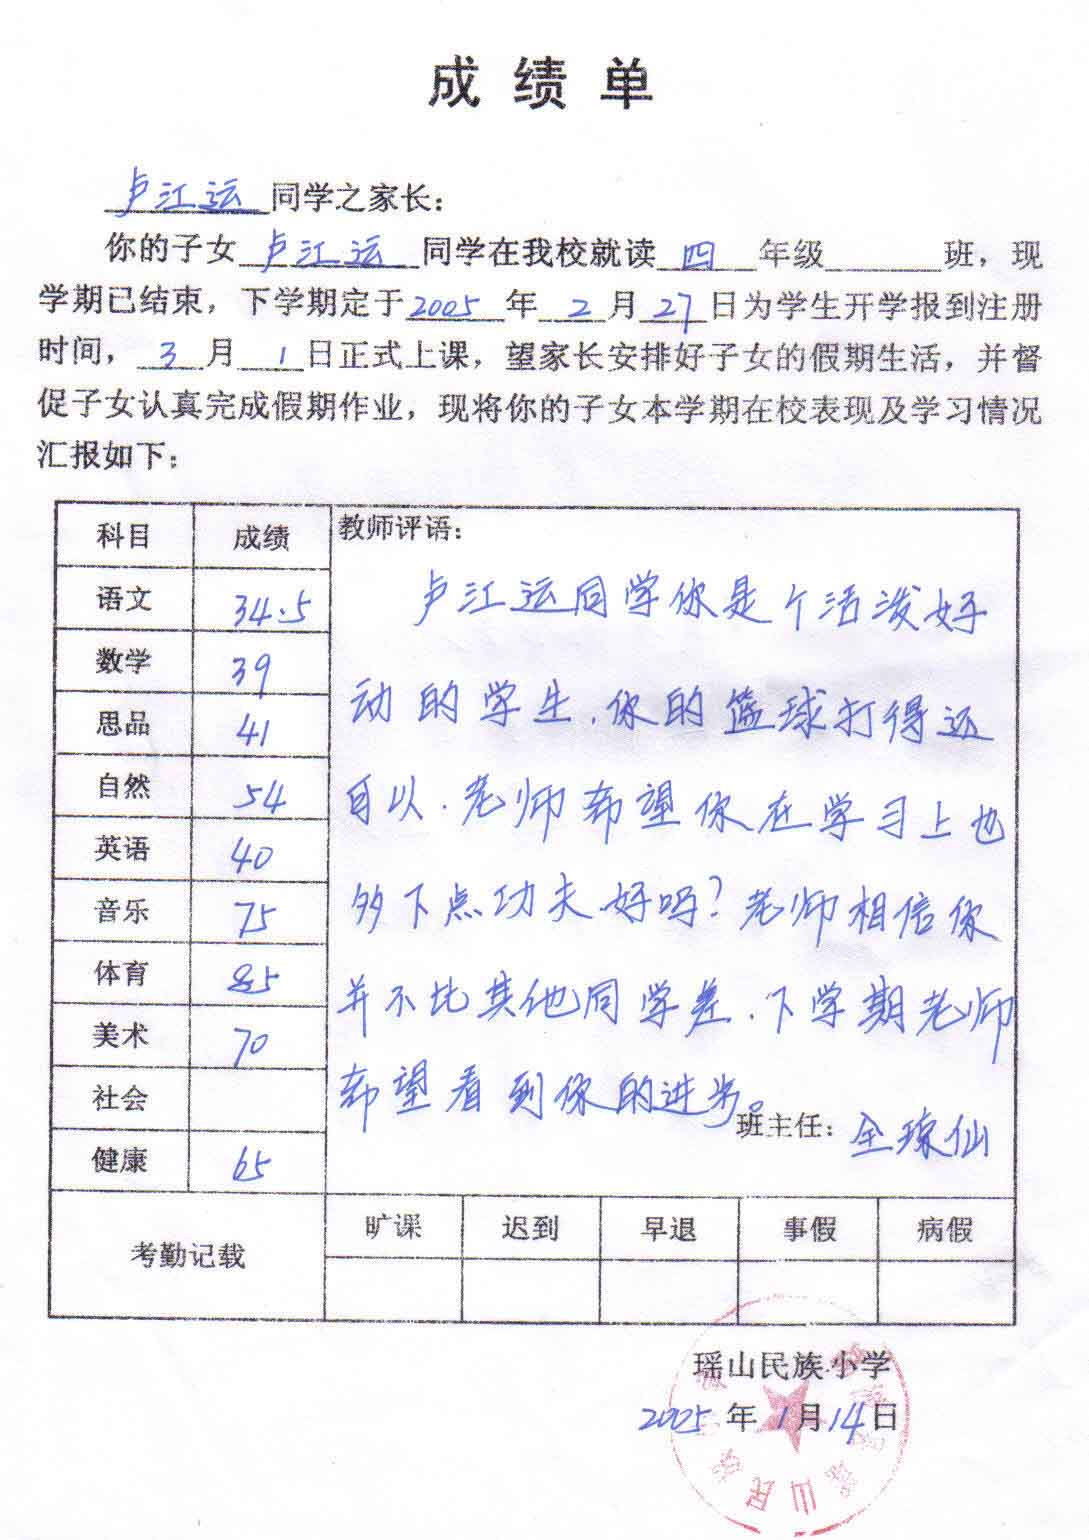 成绩单
卢江运同学之家长：
你的子女 卢江运 同学在我校就读 四 年级 班，现
学期已结束，下学期定于2005年 2 月 27 日为学生开学报到注册
时间， 3 月 1 日正式上课，望家长安排好子女的假期生活，并督
促子女认真完成假期作业，现将你的子女本学期在校表现及学习情况
汇报如下：
科目 成绩 教师评语：
语文 34.5
数学 39
思品 41
自然 54
英语 40
音乐 75
体育 85
美术 70
社会
健康 65
卢江运同学你是个活泼好
动的学生．你的篮球打得还
可以．老师希望你在学习上也
多下点功夫．好吗？老师相信你
并不比其他同学差．下学期老师
希望看到你的进步。
班主任：全琼仙
考勤记载 旷课 迟到 早退 事假 病假
瑶山民族小学
2005 年 1 月 14 日